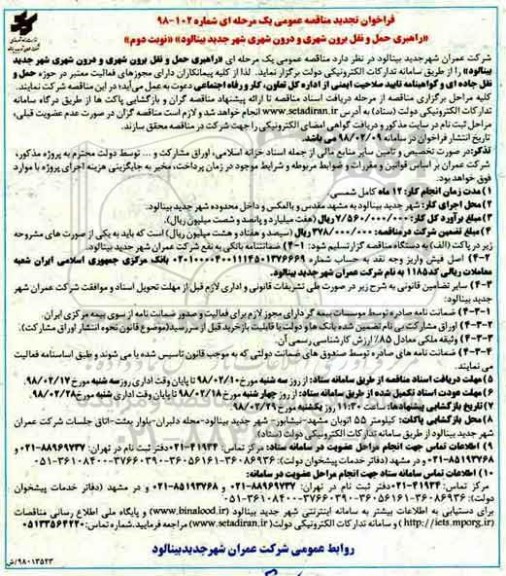 فراخوان تجدید مناقصه عمومی یک مرحله ای شماره ۱۰۲-۹۸
«راهبری حمل و نقل برون شهری و درون شهری شهر جدید بینالود» «نوبت دوم»
شرکت عمران شهرجدید بینالود در نظر دارد مناقصه عمومی یک مرحله ای «راهبری حمل و نقل برون شهری و درون شهری شهر جدید
بینالود» را از طریق سامانه تدارکات الکترونیکی دولت برگزار نماید. لذا از کلیه پیمانکاران دارای مجوزهای فعالیت معتبر در حوزه حمل و
نقل جاده ای و گواهینامه تایید صلاحیت ایمنی از اداره کل تعاون، کار و رفاه اجتماعی دعوت به عمل می آید؛ در این مناقصه شرکت نمایند.
کلیه مراحل برگزاری مناقصه از مرحله دریافت اسناد مناقصه تا ارائه پیشنهاد مناقصه گران و بازگشایی پاکت ها از طریق درگاه سامانه
تدارکات الکترونیکی دولت (ستاد) به آدرس www.setadiran.ir انجام خواهد شد و لازم است مناقصه گران در صورت عدم عضویت قبلی،
مراحل ثبت نام در سایت مذکور و دریافت گواهی امضای الکترونیکی را جهت شرکت در مناقصه محقق سازند.
تاریخ انتشار فراخوان در سامانه ۹۸/۰۲/۰۹ می باشد.
تذکر: در صورت تخصیص و تأمین سایر منابع مالی از جمله اسناد خزانه اسلامی، اوراق مشارکت و ... توسط دولت محترم به پروژه مذکور،
شرکت عمران بر اساس قوانین و مقررات و ضوابط مربوطه و شرایط موجود در زمان پرداخت، مخیر به جایگزینی هزینه اجرای پروژه با موارد
فوق خواهد بود.
۱) مدت زمان انجام کار: ۱۲ ماه کامل شمسی.
۲) محل اجرای کار: شهر جدید بینالود به مشهد مقدس و بالعکس و داخل محدوده شهر جدید بینالود.
۳) مبلغ برآورد کل کار: ۷/۵۶۰/۰۰۰/۰۰۰ ریال (هفت میلیارد و پانصد و شصت میلیون ریال).
۴) مبلغ تضمین شرکت در مناقصه: ۳۷۸/۰۰۰/۰۰۰ ریال (سیصد و هفتاد و هشت میلیون ریال) است که باید به یکی از صورت های مشروحه
زیر در پاکت (الف) به دستگاه مناقصه گزار تسلیم شود: ۴-۱) ضمانتنامه بانکی به نفع شرکت عمران شهر جدید بینالود.
۴-۲) اصل فیش واریز وجه نقد به حساب شماره بانک مرکزی جمهوری اسلامی ایران شعبه
معاملات ریالی کد ۱۱۸۵ به نام شرکت عمران شهر جدید بینالود.
۴-۳) سایر تضامین قانونی به شرح زیر در صورت طی تشریفات قانونی و اداری لازم قبل از مهلت تحویل اسناد و موافقت شرکت عمران شهر
جدید بینالود:
۴-۳-۱) ضمانت نامه صادره توسط موسسات بیمه گر دارای مجوز لازم برای فعالیت و صدور ضمانت نامه از سوی بیمه مرکزی ایران.
۴-۳-۲) اوراق مشارکت بی نام تضمین شده بانک ها و دولت با قابلیت بازخرید قبل از سررسید (موضوع قانون نحوه انتشار اوراق مشارکت).
۴-۳-۳) وثیقه ملکی معادل ۸۵٪ ارزش کارشناسی رسمی آن.
۴-۳-۴) ضمانت نامه های صادره توسط صندوق های ضمانت دولتی که به موجب قانون تاسیس شده یا می شوند و طبق اساسنامه فعالیت
می نمایند.
۵) مهلت دریافت اسناد مناقصه از طریق سامانه ستاد: از روز سه شنبه مورخ ۹۸/۰۲/۱۰ تا پایان وقت اداری روز سه شنبه مورخ ۹۸/۰۲/۱۷
۶) مهلت عودت اسناد تکمیل شده از طریق سامانه ستاد: از روز چهار شنبه مورخ ۹۸/۰۲/۱۸ تا پایان وقت اداری شنبه مورخ ۹۸/۰۲/۲۸.
۷) تاریخ بازگشایی پیشنهادها: ساعت ۱۱:۳۰ روز یکشنبه مورخ ۹۸/۰۲/۲۹
۸) محل بازگشایی پاکات: کیلومتر ۵۵ اتوبان مشهد-نیشابور- شهر جدید بینالود-محله دلبران-بلوار بعثت-اتاق جلسات شرکت عمران
شهر جدید بینالود از طریق سامانه تدارکات الکترونیکی دولت (ستاد)
۹) اطلاعات تماس جهت انجام مراحل عضویت در سامانه ستاد: مرکز تماس: ۴۱۹۳۴-۰۲۱ دفتر ثبت نام در تهران: ۸۸۹۶۹۷۳۷-۰۲۱
و ۸۵۱۹۳۷۶۸-۰۲۱ و در مشهد (دفاتر خدمات پیشخوان دولت):
۱۰) اطلاعات تماس سامانه ستاد جهت انجام مراحل عضویت در سامانه:
مرکز تماس: ۴۱۹۳۴-۰۲۱ دفتر ثبت نام در تهران: ۸۸۹۶۹۷۳۷-۰۲۱ و ۸۵۱۹۳۷۶۸-۰۲۱ و در مشهد (دفاتر خدمات پیشخوان
دولت):
برای دستیابی به اطلاعات بیشتر به سامانه اینترنتی شهر جدید بینالود (www.binalood.ir) و پایگاه ملی اطلاع رسانی مناقصات
(http://iets.mporg.ir) و سامانه تدارکات الکترونیکی دولت (www.setadiran.ir) مراجعه فرمایید. شماره تماس: ۰۵۱۳۳۵۶۴۲۲۰
روابط عمومی شرکت عمران شهر جدید بینالود
۹۸۰۱۳۵۲۳/ش